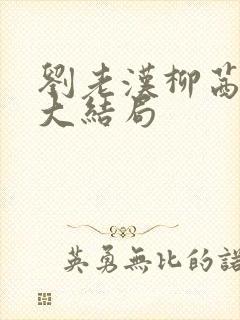 劉老漢柳茜
大結局
英勇無比的諾